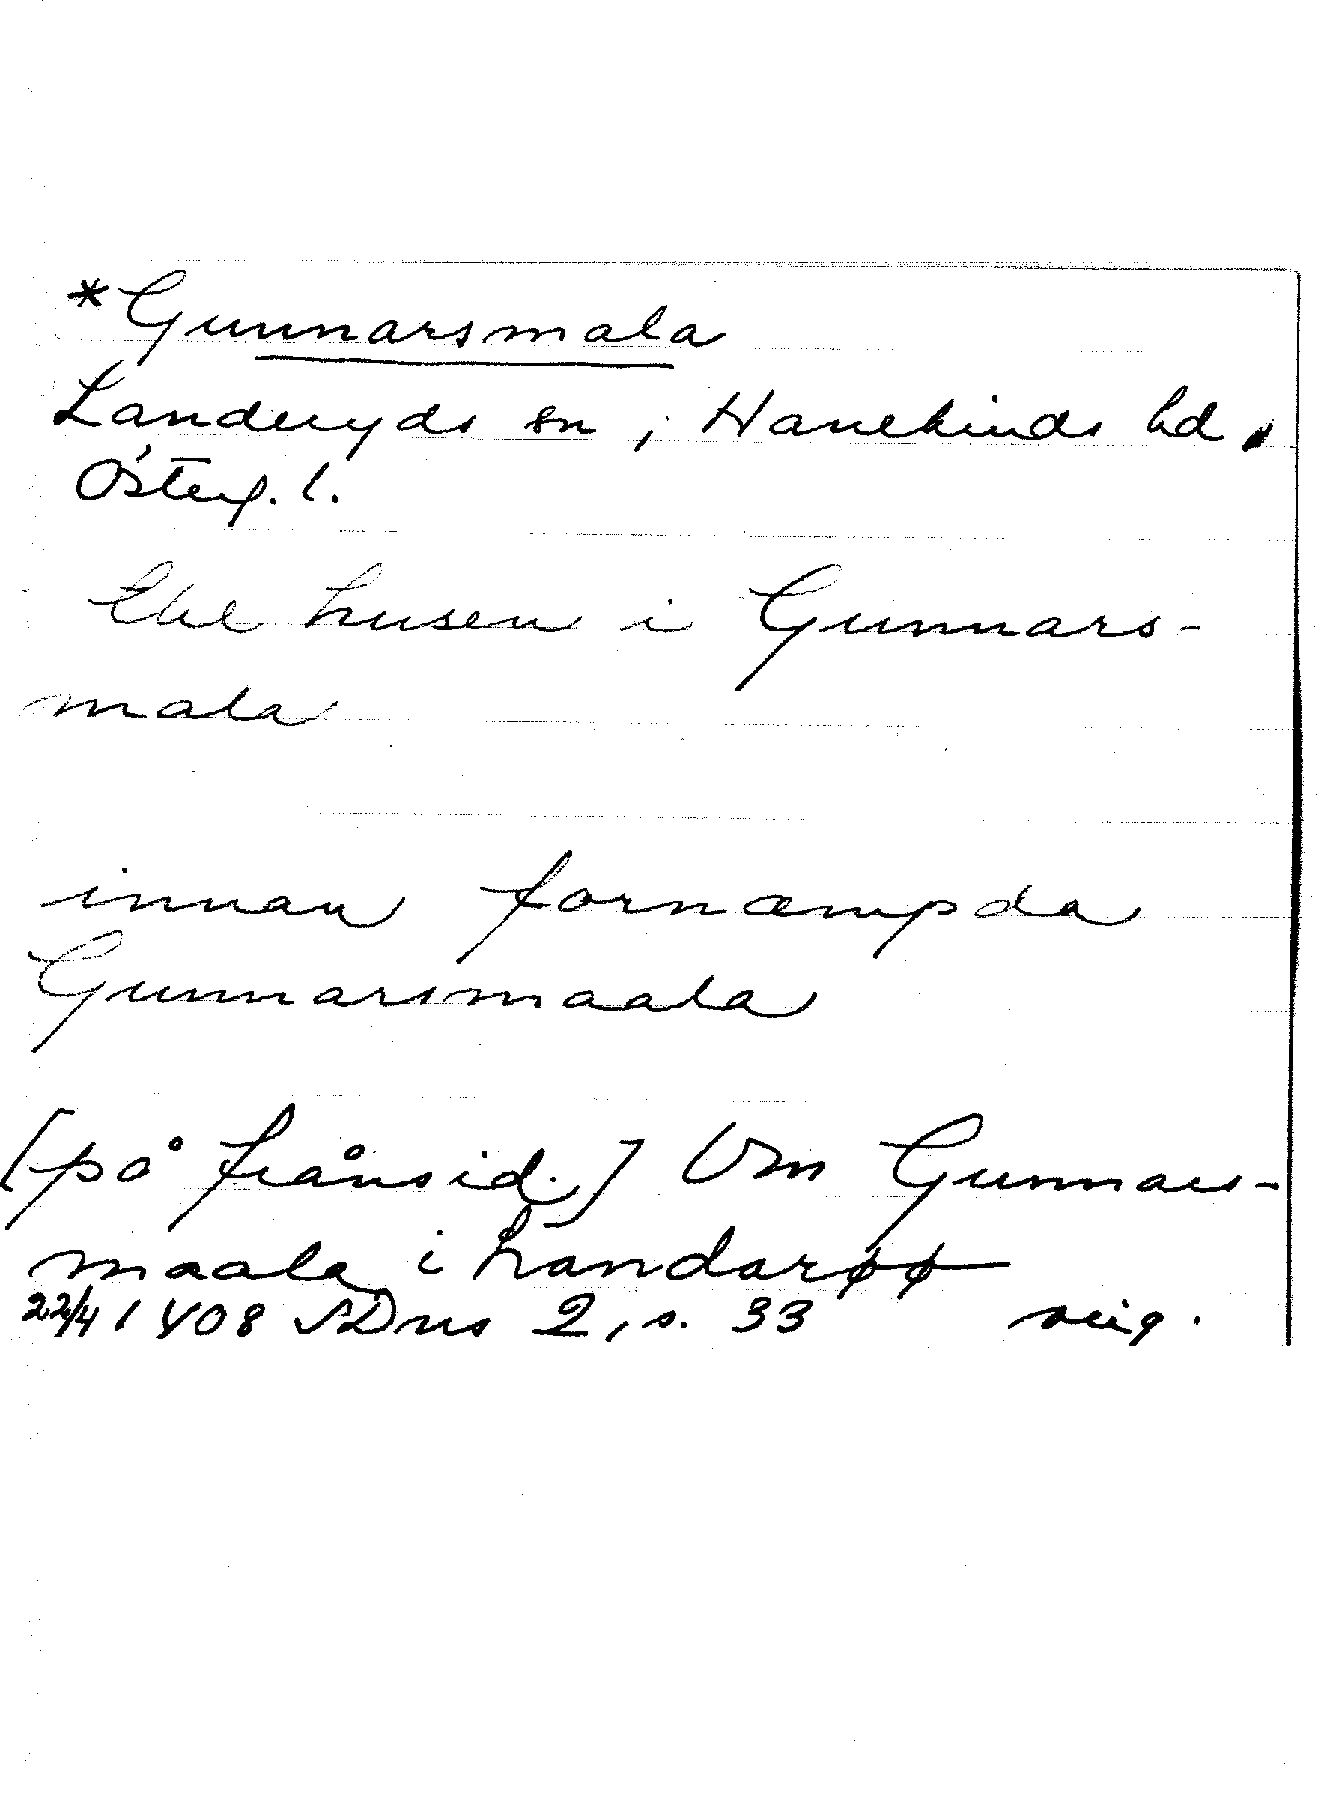 *Gunnarsmala
Landeryds sn, Hanekinds hd,
Österg. l.
Ebe husen i Gunnars-
mala
innan fornæmpda
Gunnarsmaala
[på frånsid.] Vm Gunnars-
maala i handarøø
22/4 1408 SDns 2, s. 33 orig.